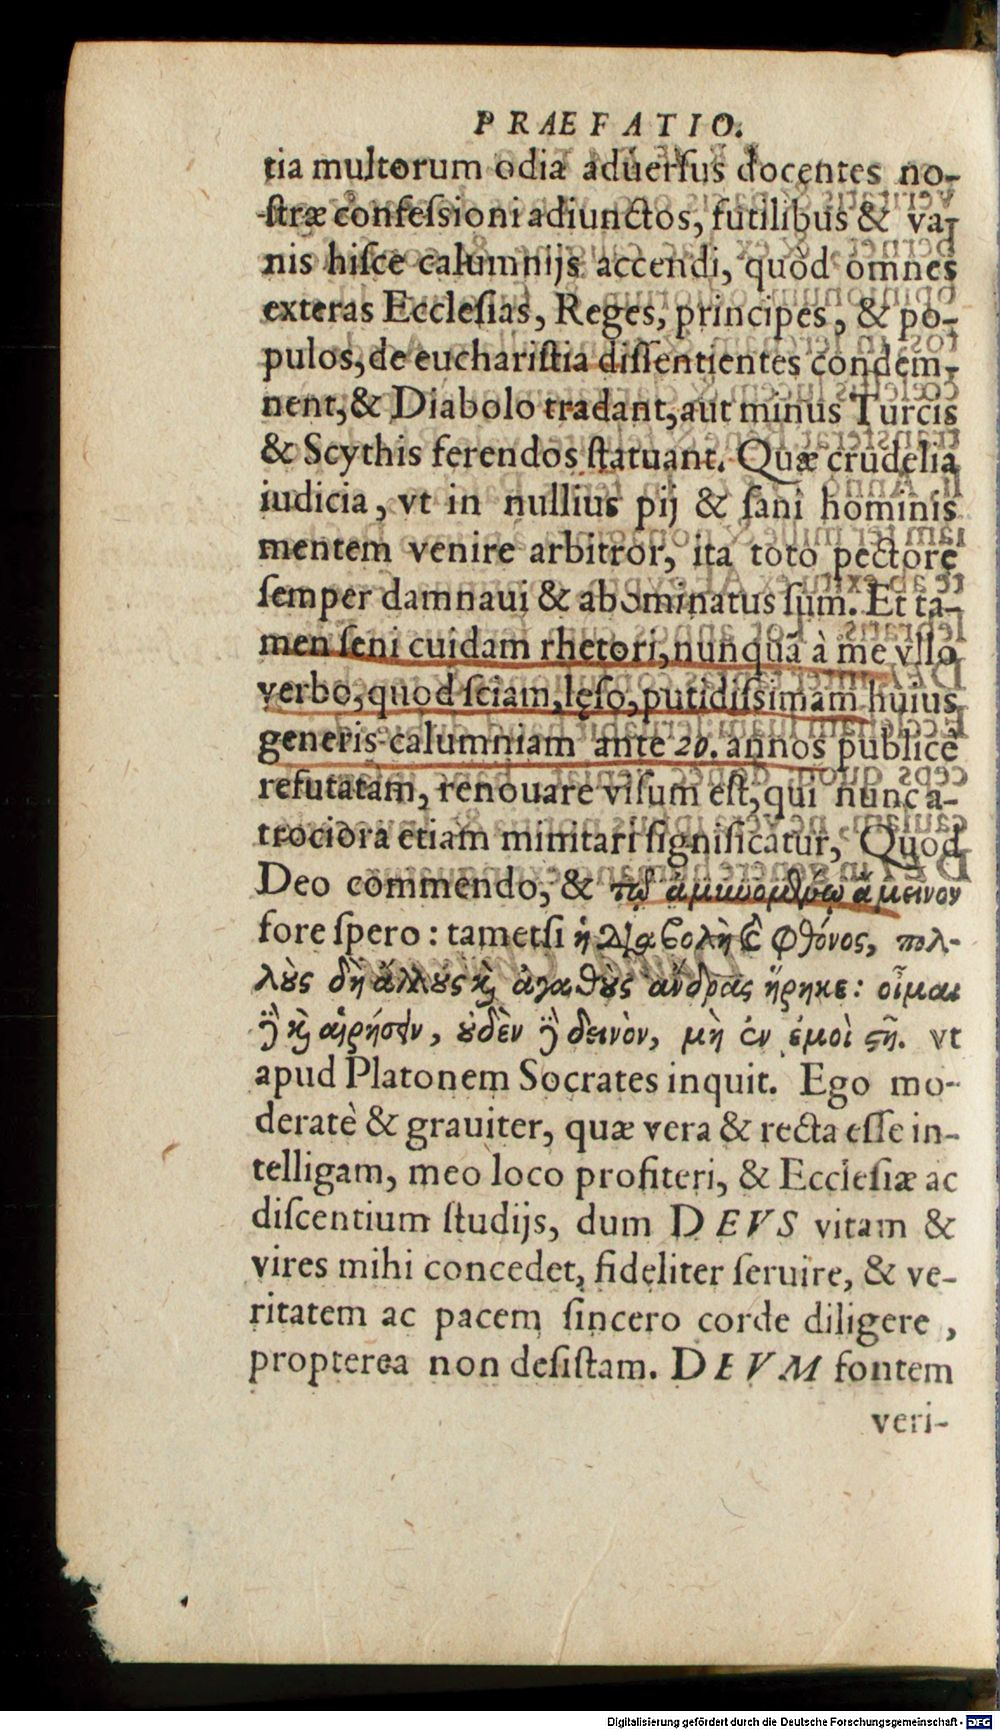 PRAEFATIO.
tia multorum odia aduersus docentes no-
stræ confessioni adiunctos, futilibus & va-
nis hisce calumnijs accendi, quòd omnes
exteras Ecclesias, Reges, principes, & po-
pulos, de eucharistia dissentientes condem-
nent, & Diabolo tradant, aut minus Turcis
& Scythis ferendos statuant. Quæ crudelia
iudicia, vt in nullius pij & sani hominis
mentem venire arbitror, ita toto pectore
semper damnaui & abominatus sum. Et ta-
men seni cuidam rhetori, nunquã à me vllo
verbo, quod sciam, lęso, putidissimam huius
generis calumniam ante 20. annos publicè
refutatam, renouare visum est, qui nunc a-
trociora etiam minitari significatur, Quod
Deo commendo, & ἄμεινον
fore spero: tametsi ἡ διαβολὴ καὶ φθόνος, πολ-
λοὺς δὴ ἄλλους καὶ ἀγαθοὺς ἄνδρας ᾕρηκε: οἶμαι
δὲ καὶ αἱρήσειν, οὐδὲν δὲ δεινὸν, μὴ ἐν ἐμοὶ στῆ. vt
apud Platonem Socrates inquit. Ego mo-
deratè & grauiter, quæ vera & recta esse in-
telligam, meo loco profiteri, & Ecclesiæ ac
discentium studijs, dum DEVS vitam &
vires mihi concedet, fideliter seruire, & ve-
ritatem ac pacem sincero corde diligere,
propterea non desistam. DEVM fontem
veri-
Digitalisierung gefördert durch die Deutsche Forschungsgemeinschaft - DFG